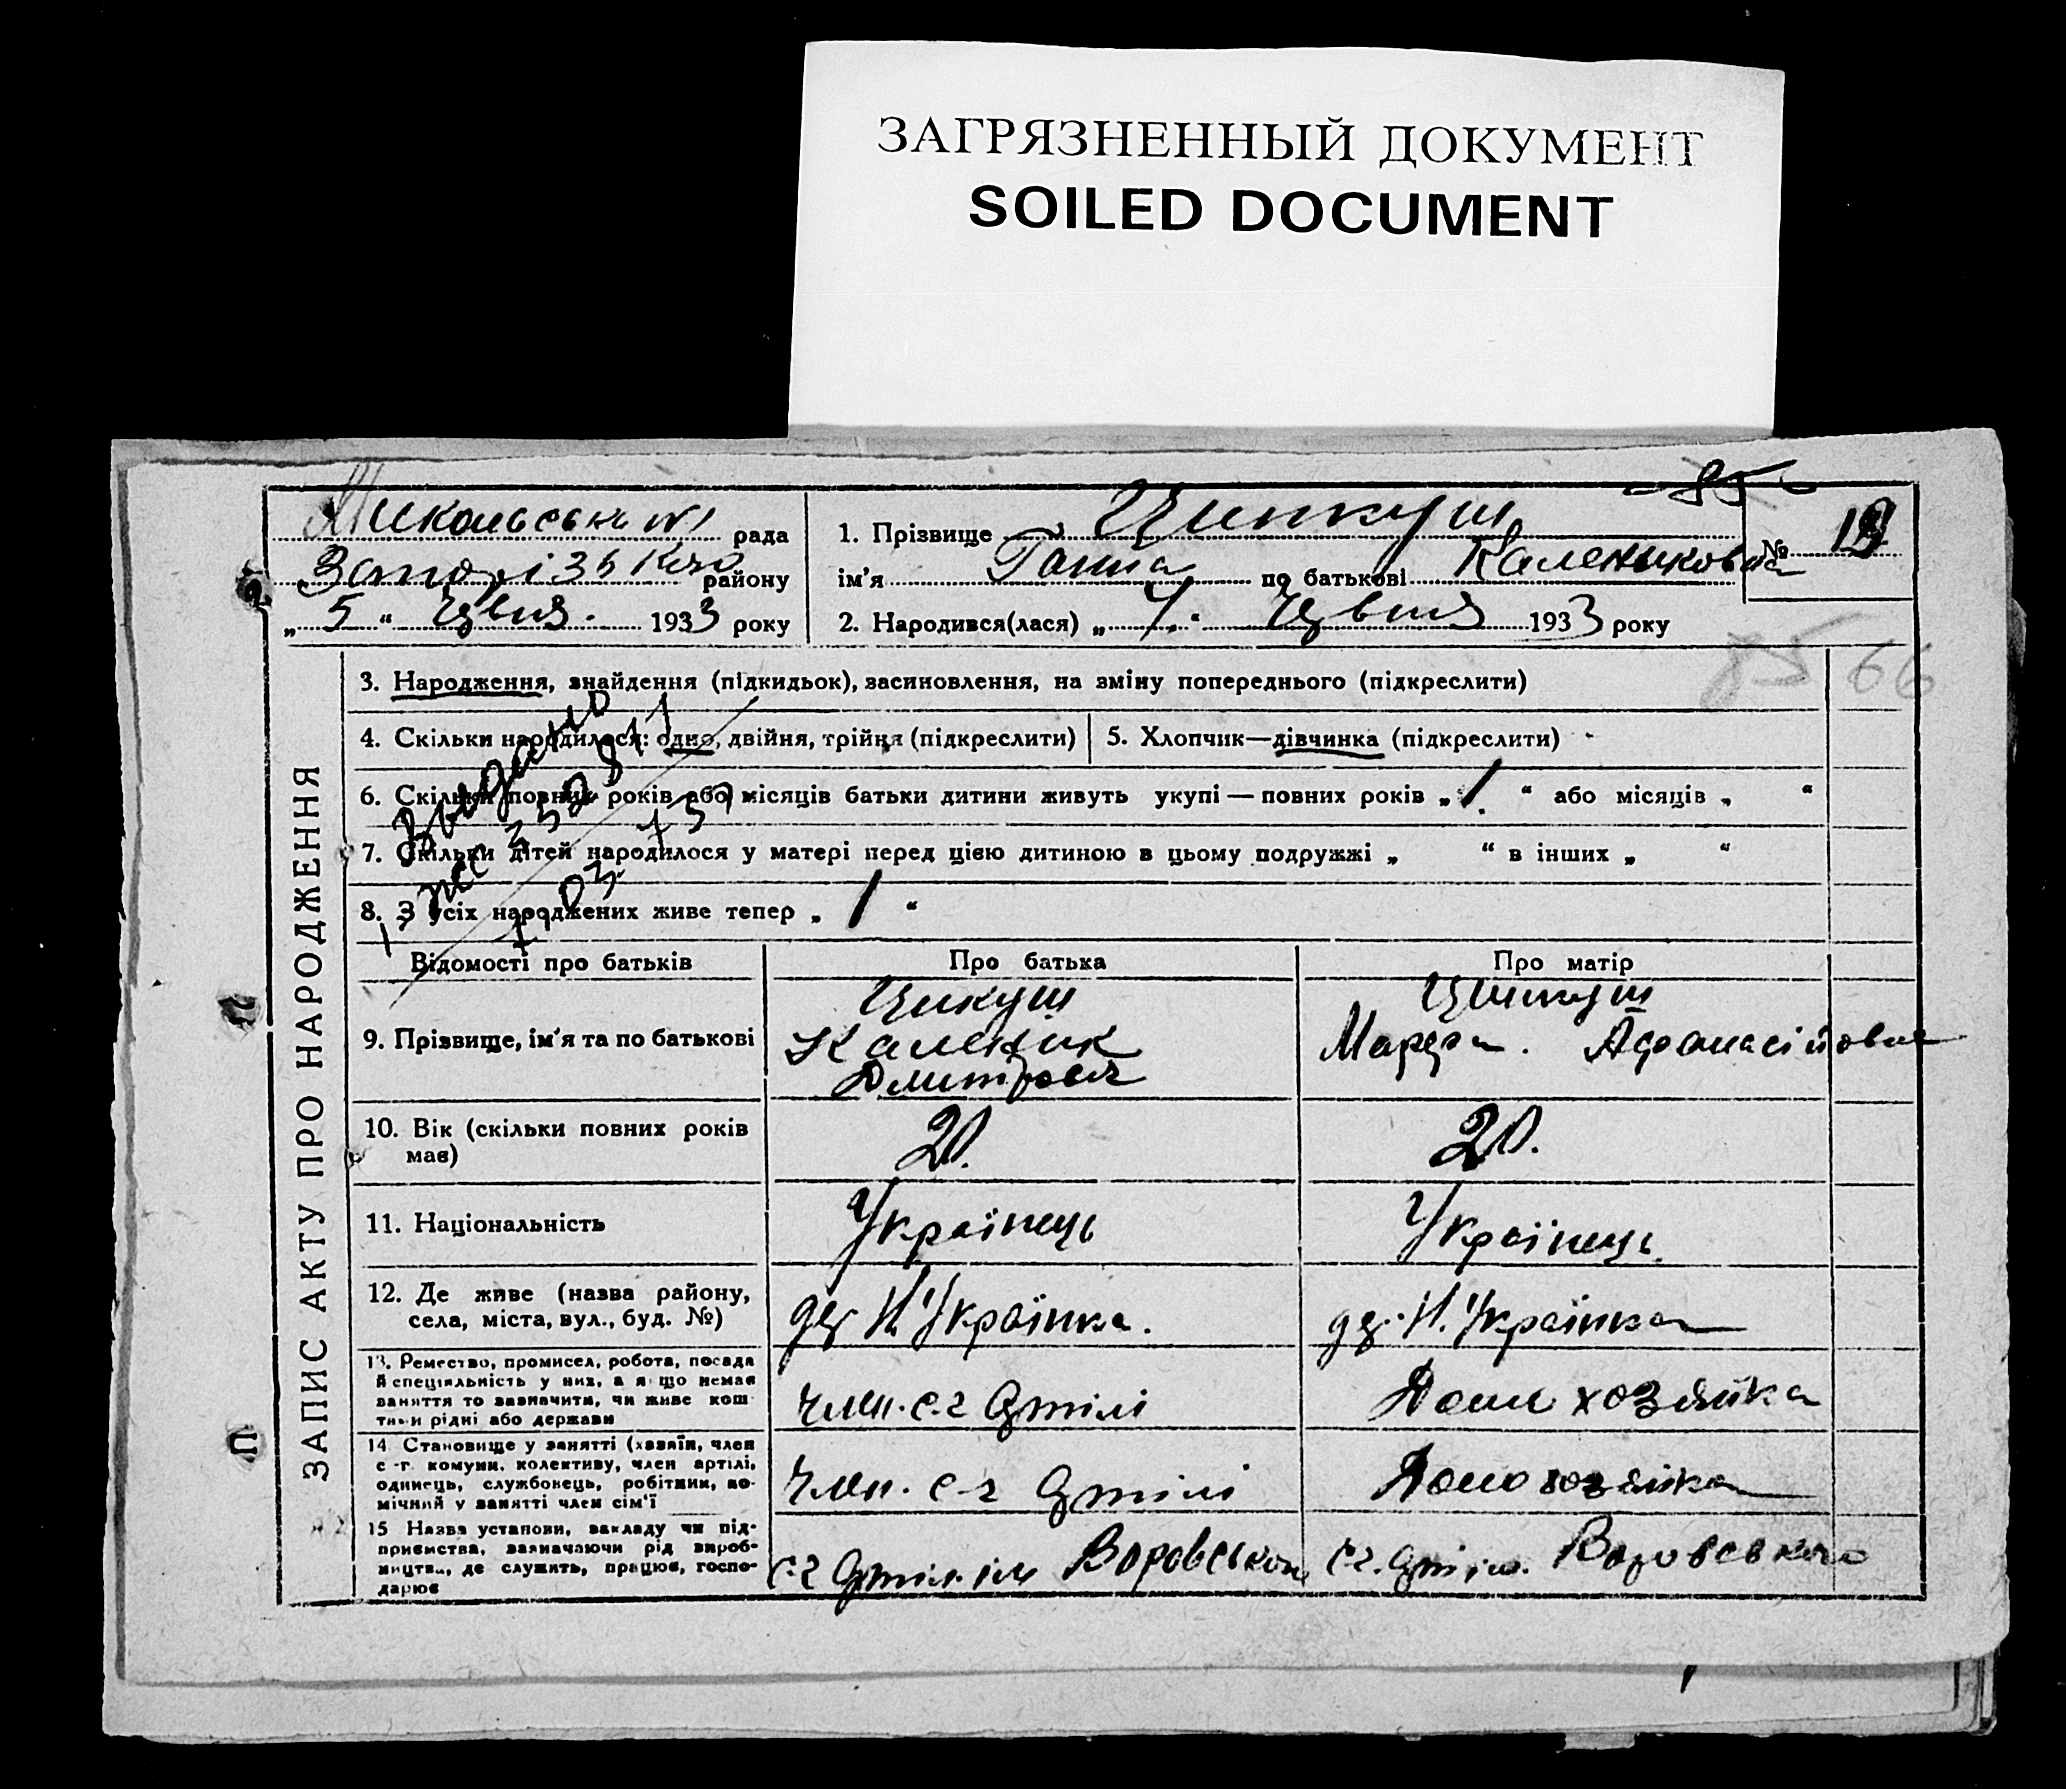 ЗАГРЯЗНЕННЫЙ ДОКУМЕНТ
SOILED DOCUMENT
85
Микольська №1 рада
Запорізького району
„ 5 “ 1933 року
1. Прізвище Ципкуш
ім’я Ганна по батькові Калениковна
2. Народився(лася) „ “ 1933 року
№
85 66
ЗАПИС АКТУ ПРО НАРОДЖЕННЯ
3. Народження, знайдення (підкидьок), засиновлення, на зміну попереднього (підкреслити)
4. Скільки народилося: одно, двійня, трійня (підкреслити)
5. Хлопчик—дівчинка (підкреслити)
6. Скільки повних років або місяців батьки дитини живуть укупі — повних років „ 1 “ або місяців „ “
7. Скільки дітей народилося у матері перед цією дитиною в цьому подружжі „ “ в інших „ “
8. З усіх народжених живе тепер „ 1 “
Видано
Відомості про батьків
Про батька
Про матір
9. Прізвище, ім’я та по батькові
Цикуш
Каленик
Дмитрович
Ципкуш
Марфа Афанасійовна
10. Вік (скільки повних років має)
20.
20.
11. Національність
Українець
Українець
12. Де живе (назва району,
села, міста, вул., буд. №)
Н. Українка.
Н. Українка
13. Ремество, промисел, робота, посада
й спеціяльність у них, а якщо немає
заняття то зазначити, чи живе кош-
тами рідні або держави
член. с-г артілі
Дом хозяйка
14. Становище у занятті (хазяїн, член
с.-г. комуни, колективу, член артілі,
одинець, службовець, робітник, по-
мічний у занятті член сім'ї
член. с-г артілі
Домохозяйка
15. Назва установи, закладу чи під-
приємства, зазначаючи рід вироб-
ництва, де служить, працює, госпо-
дарює
с-г артіл. ім Воровського
с-г. артіл. Воровського